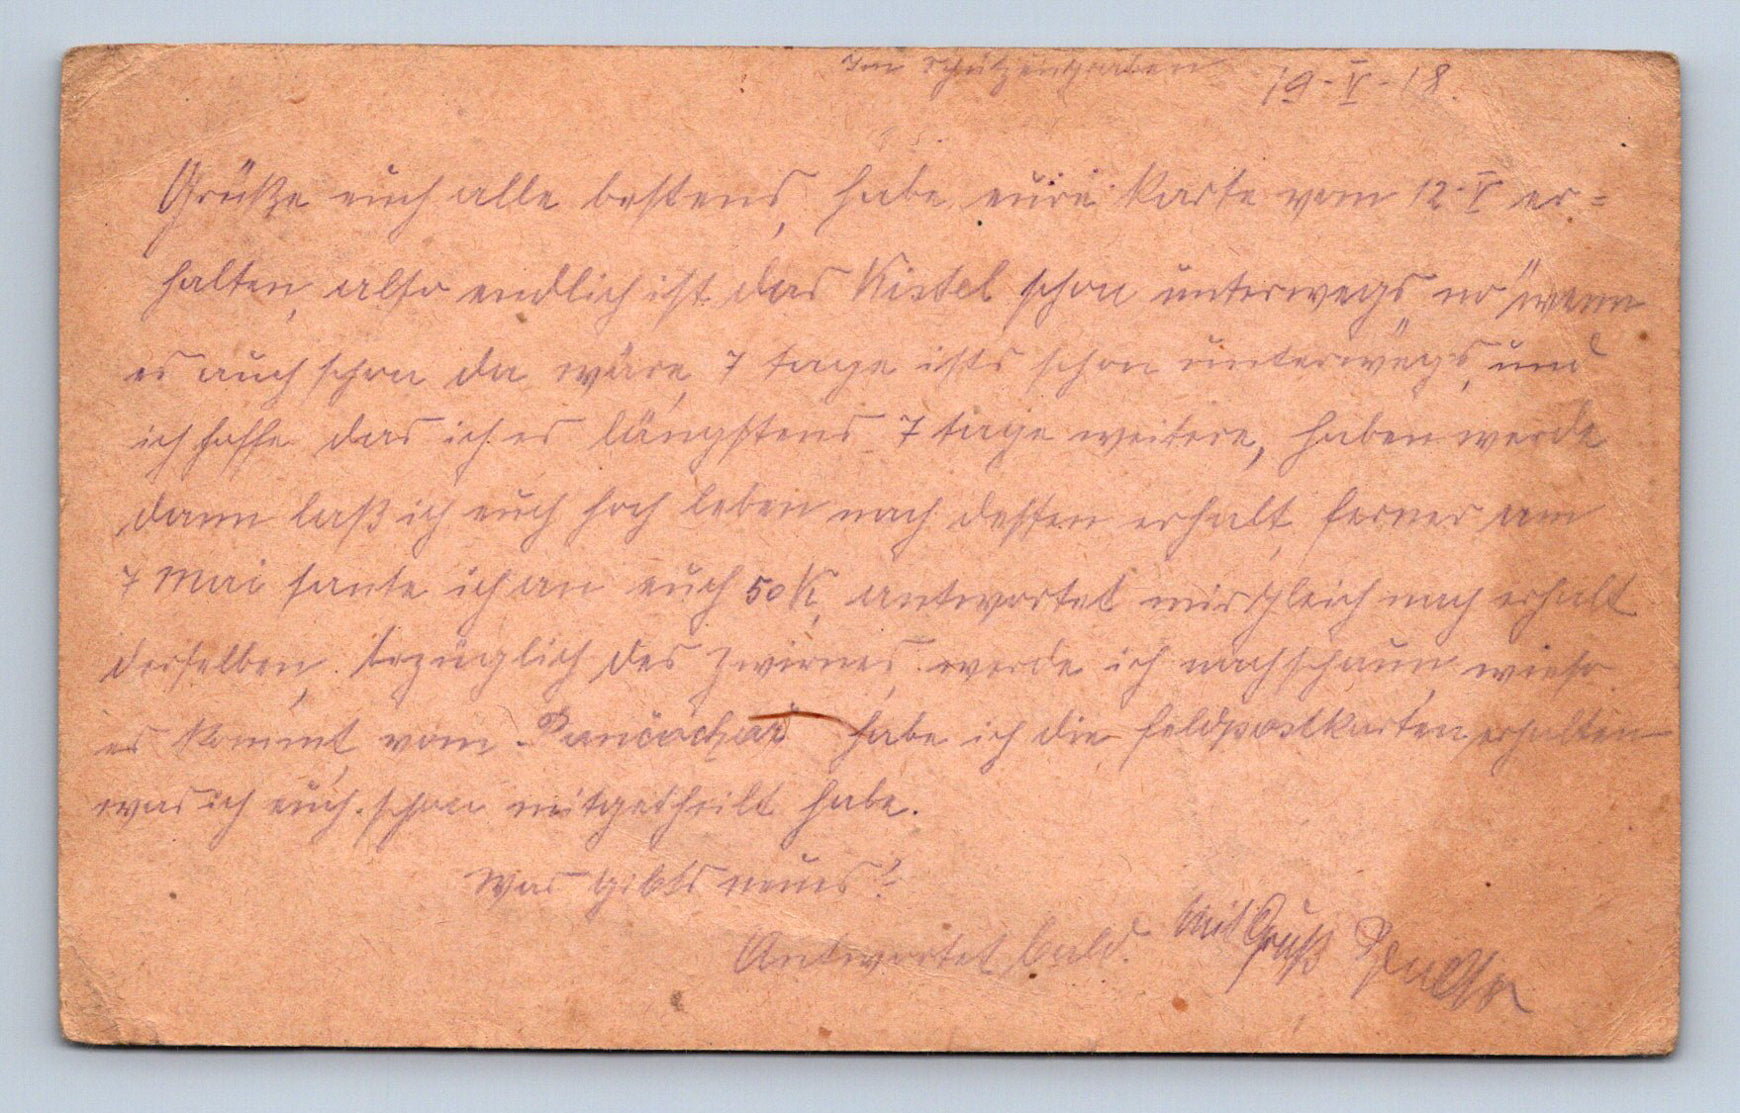 Im Schützengraben 19-V-18.
Grüße euch alle bestens, habe eure Karte vom 12.V er=
halten, also endlich ist das Kistel schon unterwegs, no wenn
es auch schon da wäre, 7 tage ists schon unterwegs, und
ich hoffe das ich es längstens 7 tage weitere, haben werde
dann laß ich euch hoch leben nach dessen erhalt, ferner am
7 Mai sante ich an euch 50 K, antwortet mir gleich nach erhalt
derselben. bezüglich des Zwirnes, werde ich nachschaun, wieso
es kommt, vom habe ich die Feldpostkarten erhalten
was ich euch schon mitgetheilt habe.
Was gibts neues?
Antwortet bald. Mit Gruß